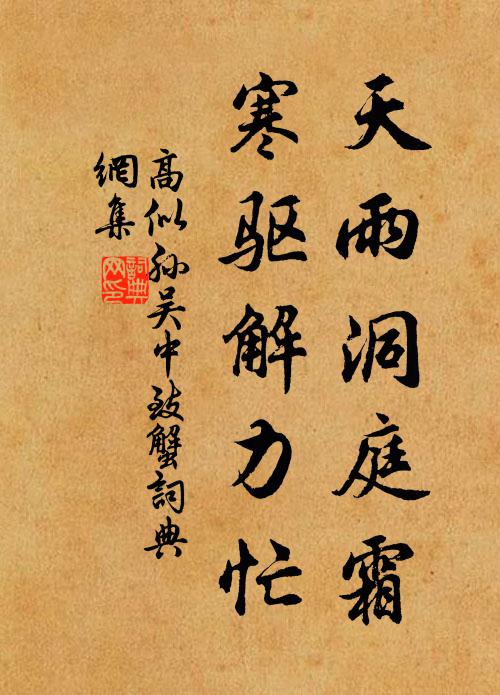 天雨洞庭霜
寒驱解力忙
高似孙吴中致蟹詞典
網集
詞典
网印